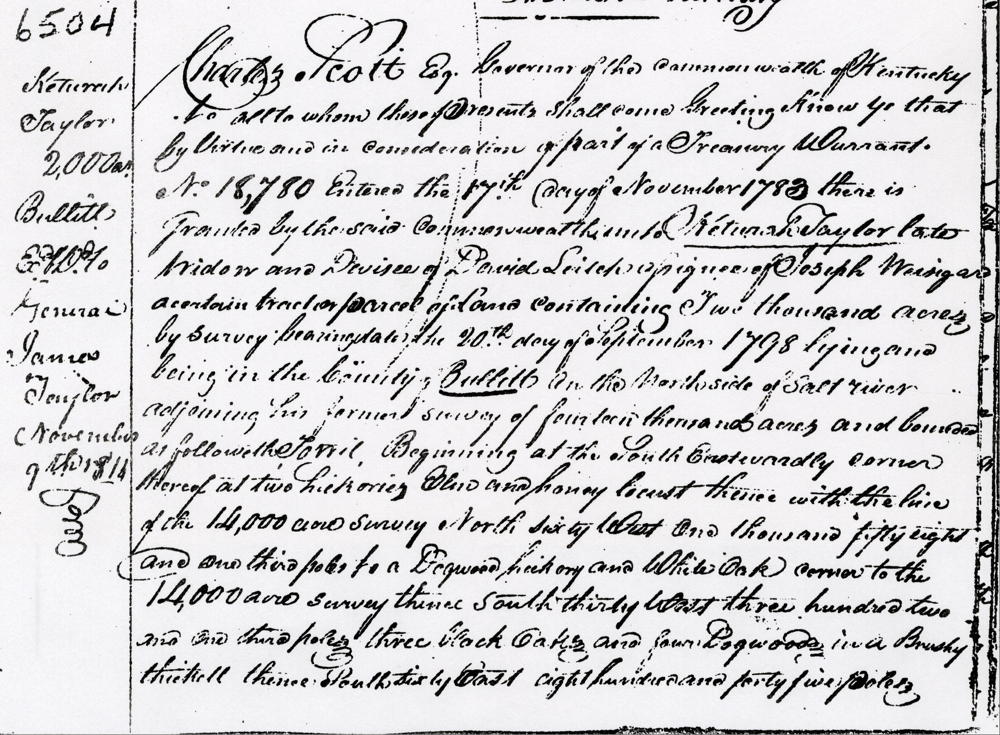 6504
Keturah
Taylor
2,000 as.
Bullitt
Exd. Wd. to
General
James
Taylor
November
9th 1814
Charles Scott Esq. Governor of the Commonwealth of Kentucky
to all to whom these presents shall come Greeting Know ye that
by Virtue and in consideration of part of a Treasury Warrant
No. 18,780 Entered the 17th day of November 1783 there is
Granted by the said Commonwealth unto Keturah Taylor late
Widow and Devisee of David Leitch assignee of Joseph Wisingard
a certain tract or parcel of Land containing Two thousand acres
by survey bearing date the 20th day of September 1798 lying and
being in the County of Bullitt on the North side of Salt river
adjoining his former survey of fourteen thousand acres and bounded
as followeth Towit, Beginning at the South Eastwardly corner
thereof at two hickories Elm and honey locust thence with the line
of the 14,000 acre survey North sixty West one thousand fifty eight
and one third poles to a Dogwood hickory and White Oak corner to the
14,000 acre survey thence South thirty West three hundred two
and one third poles three black Oaks and four Dogwoods in a Brushy
thickett thence South sixty East eight hundred and forty five poles